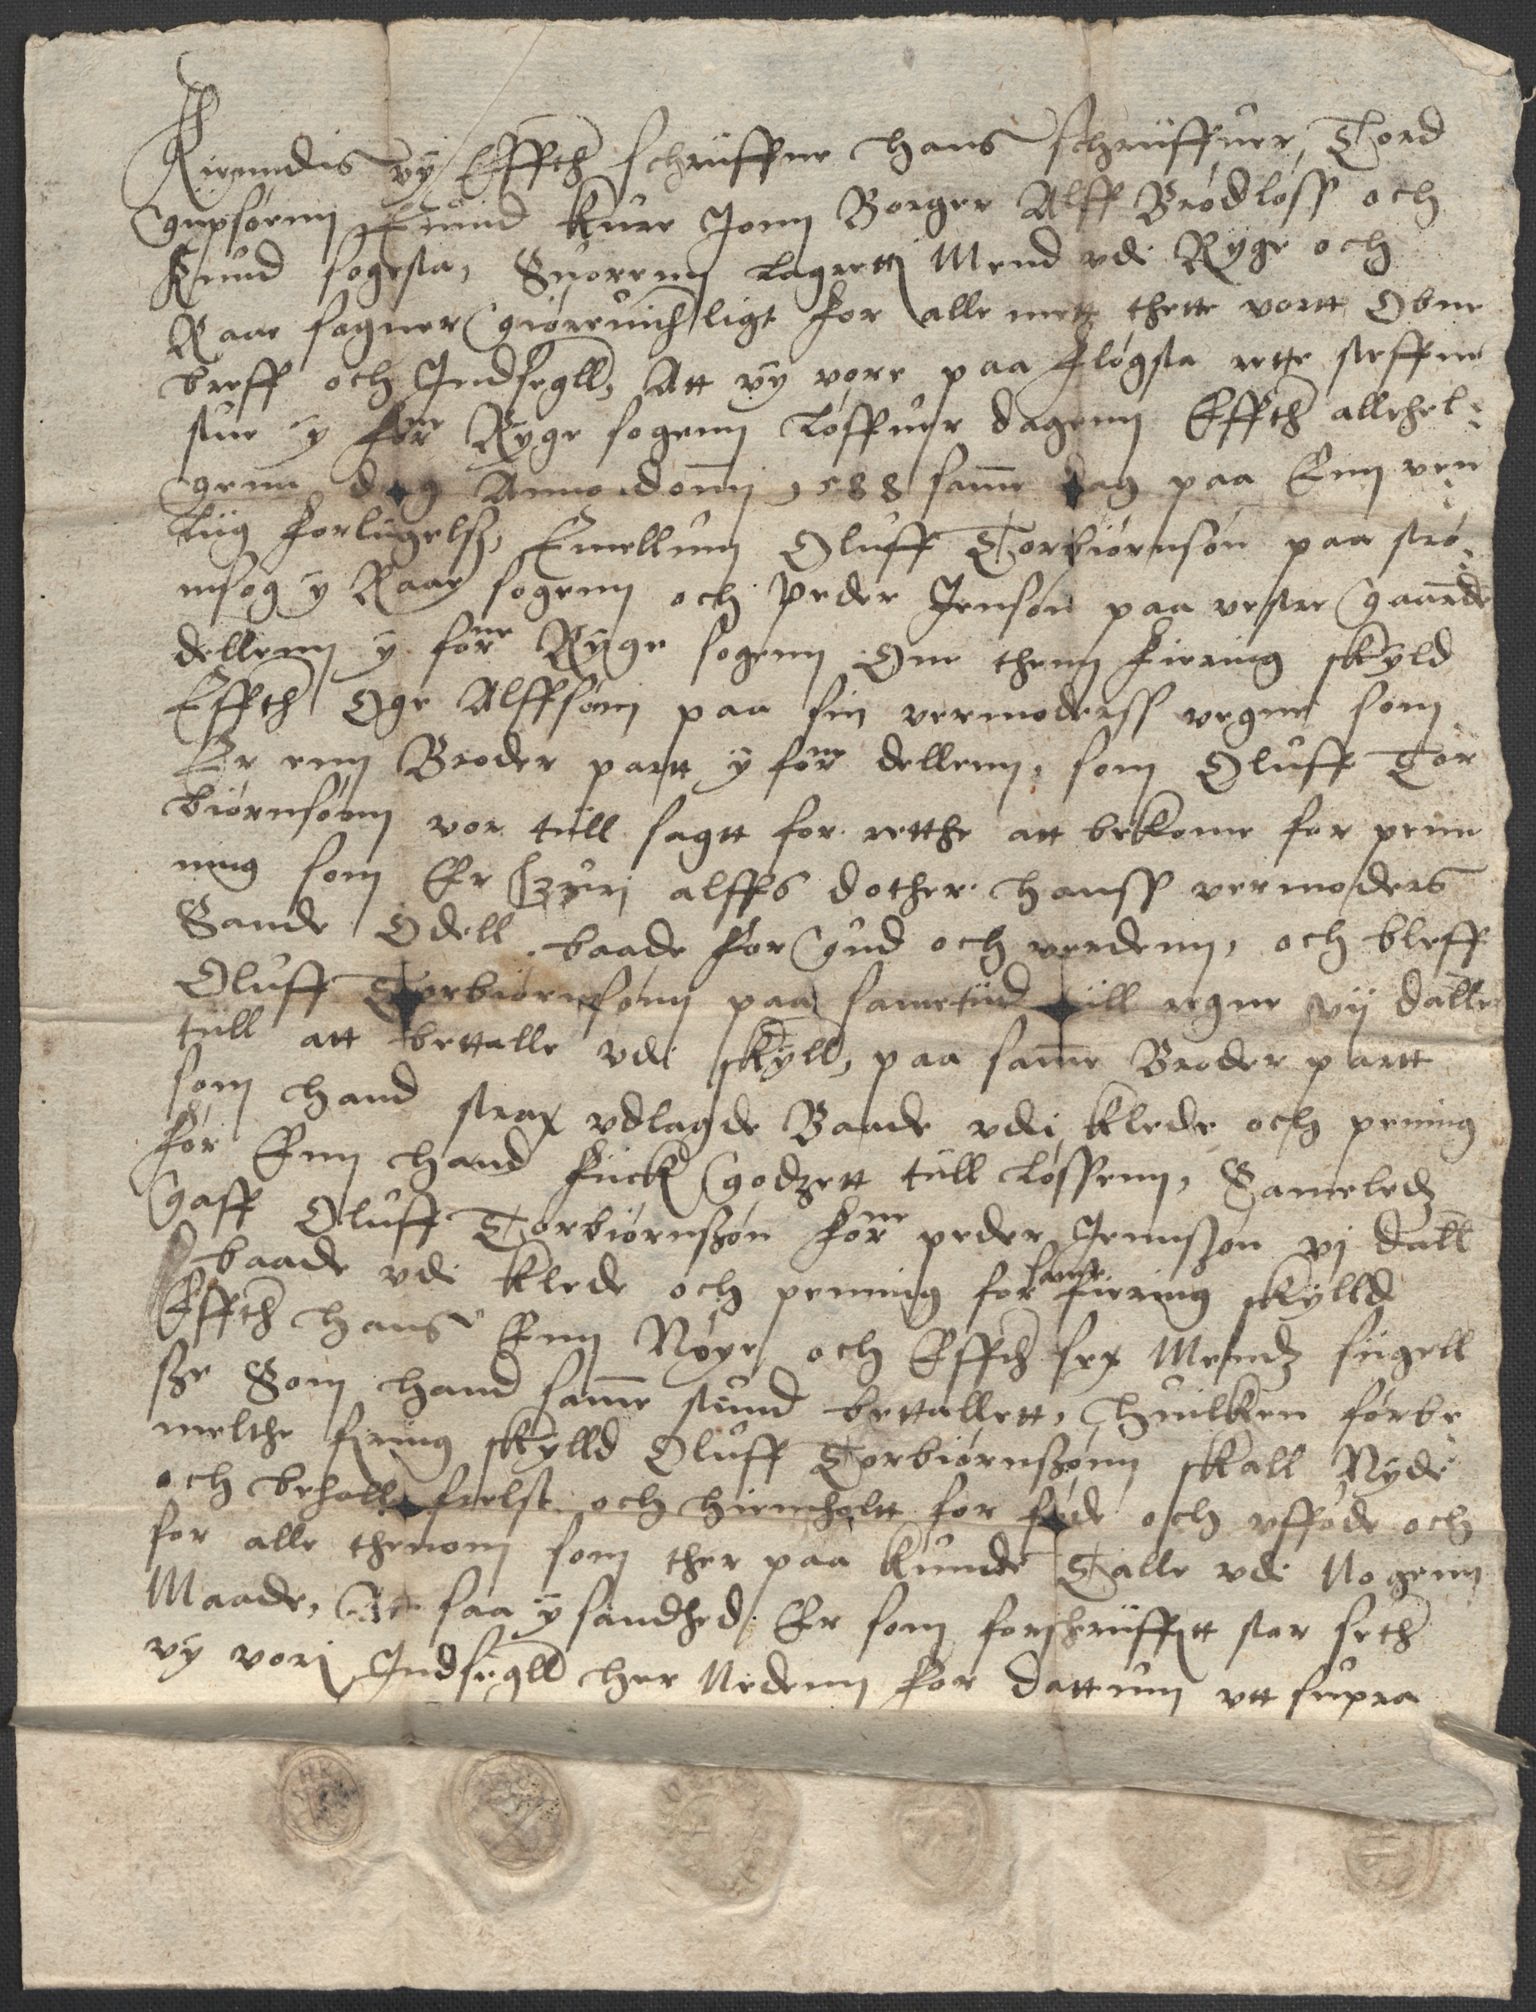 Kienndis vy Effthr schriiffne Hans schriiffuer, Tord
gupsønn Emind kure Jonn Borger Alff Brødløss och
Knud sogsta, Suorenn lagrett Mend vdi Ryge och
Raae sogner giøre vitherligt for alle mett thette vortt Obne
breff och Indsegll, Att vy vore paa Fløgsta rette steffne
stue y forne Ryge sogenn løffuer dagenn Effthr allehel-
genn dag Anno domni 1588 samme dag paa Enn ven-
liig forligelsse, Emellumm Oluff Torbiørnsøn paa strø-
msog y Raae sogenn och Peder Jensøn paa vestre gaarde
dellenn y forne Ryge sogenn Om thenn fiering skyld
Effthr Oge Alffsønn paa sin vermoderss vegne som
Er enn Broder partt y forne dellenn, som Oluff Tor
biørnsønn vor till sagtt for retthe att bekome for penn
ning som Er Szuri alffs dother hanss vermoders
Sande Odell baade for gud och verdenn, och bleff
Oluff Torbiørnsønn paa sametiid till regne vij daller
till att bettalle vdi skylld, paa samme Broder partt
som hand strax vdlagde Baade vdi klede och pening
før Enn hand fiick godzett till løssenn, Sameledz
gaff Oluff Torbiørnszøn forne peder Jennszøn vj dall
baade vdi klede och penning for samme fiering skylld
Effthr hans Enn Nøye och Effthr sex Mendz siigell
sze Som hand samme stund bettallett, Huilken førbe
melthe fiering skylld Oluff Torbiørnszønn skall Nyde
och beholle frelst och hiemholtt for føde och vfføde och
for alle thenom som ther paa kunde Talle vdi Nogenn
Maade, Att saa y sandhed Er som forschriiffuitt star setthr
vy vori Indsegll her Nedenn for dattum vtt supra